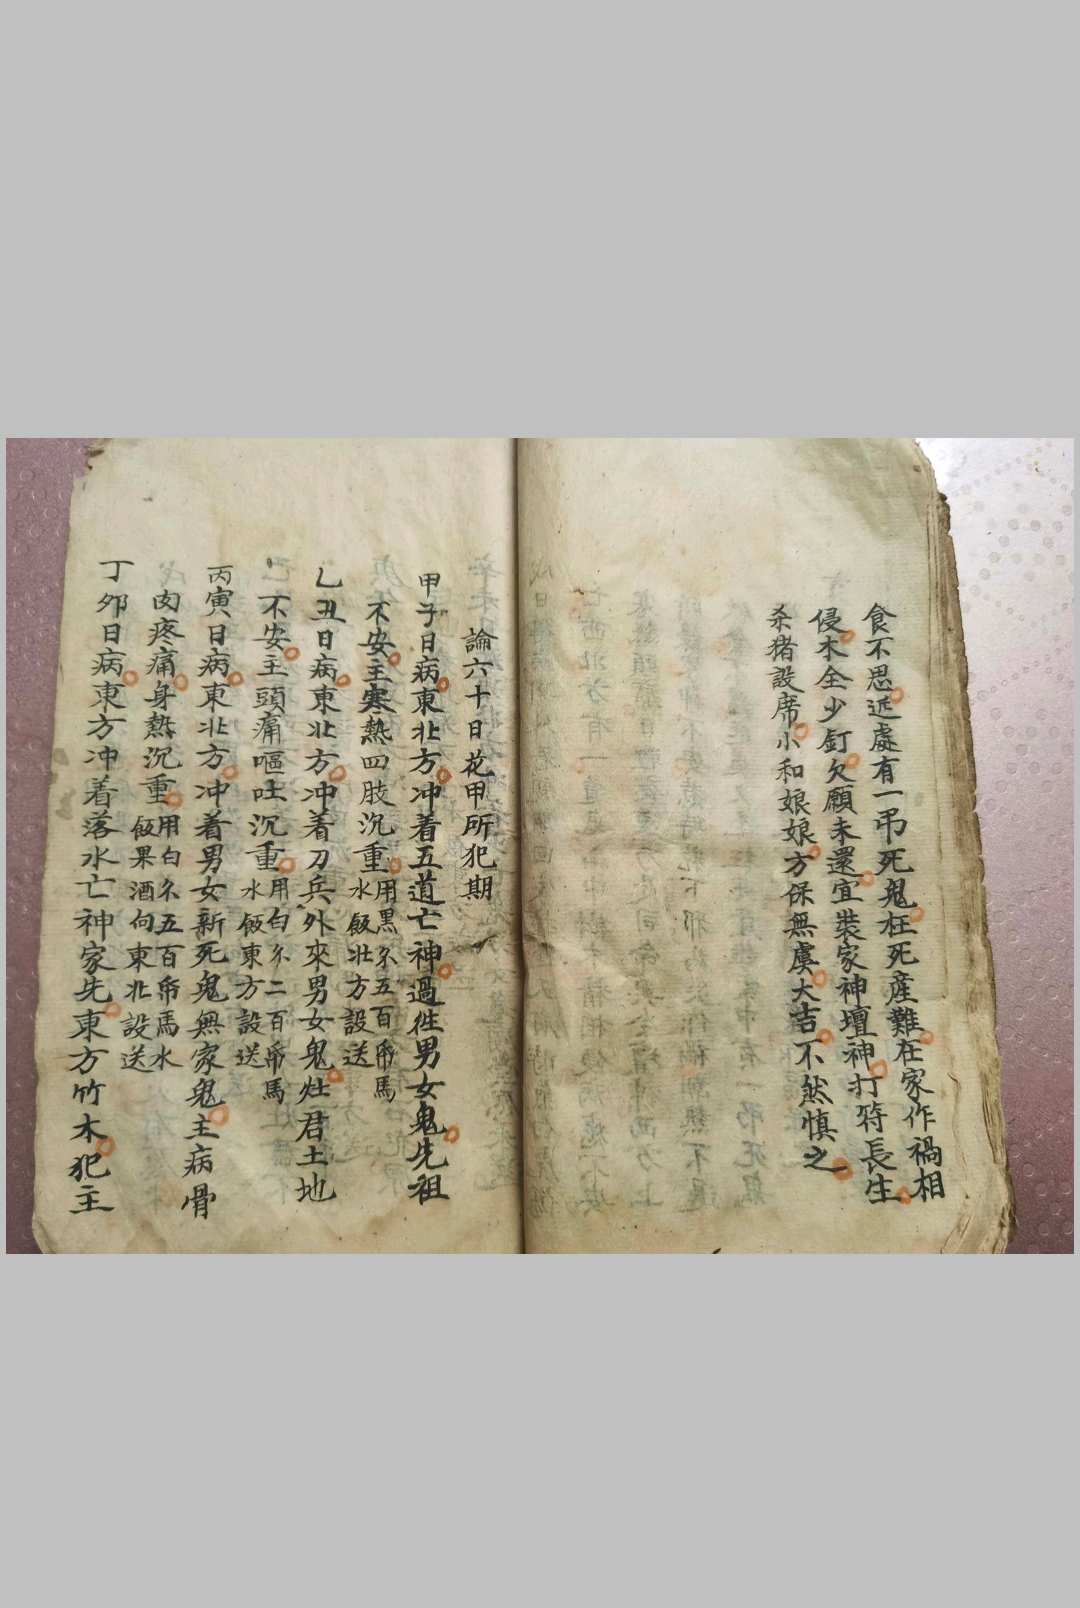 食不思近處有一弔死鬼枉死產難在家作禍相
侵木全少釘欠願未還宜裝家神壇神打符長生
杀猪設席小和娘娘方保無虞大吉不然慎之
論六十日花甲所犯期
甲子日病東北方冲着五道亡神過徃男女鬼先祖
不安主寒熱四肢沉重用黑糸五百帋馬
水飯北方設送
乙丑日病東北方冲着刀兵外來男女鬼灶君土地
不安主頭痛嘔吐沉重用白糸二百帋馬
水飯東方設送
丙寅日病東北方冲着男女新死鬼無家鬼主病骨
肉疼痛身熱沉重用白糸五百帋馬水
飯果酒向東北設送
丁夘日病東方冲着落水亡神家先東方竹木犯主